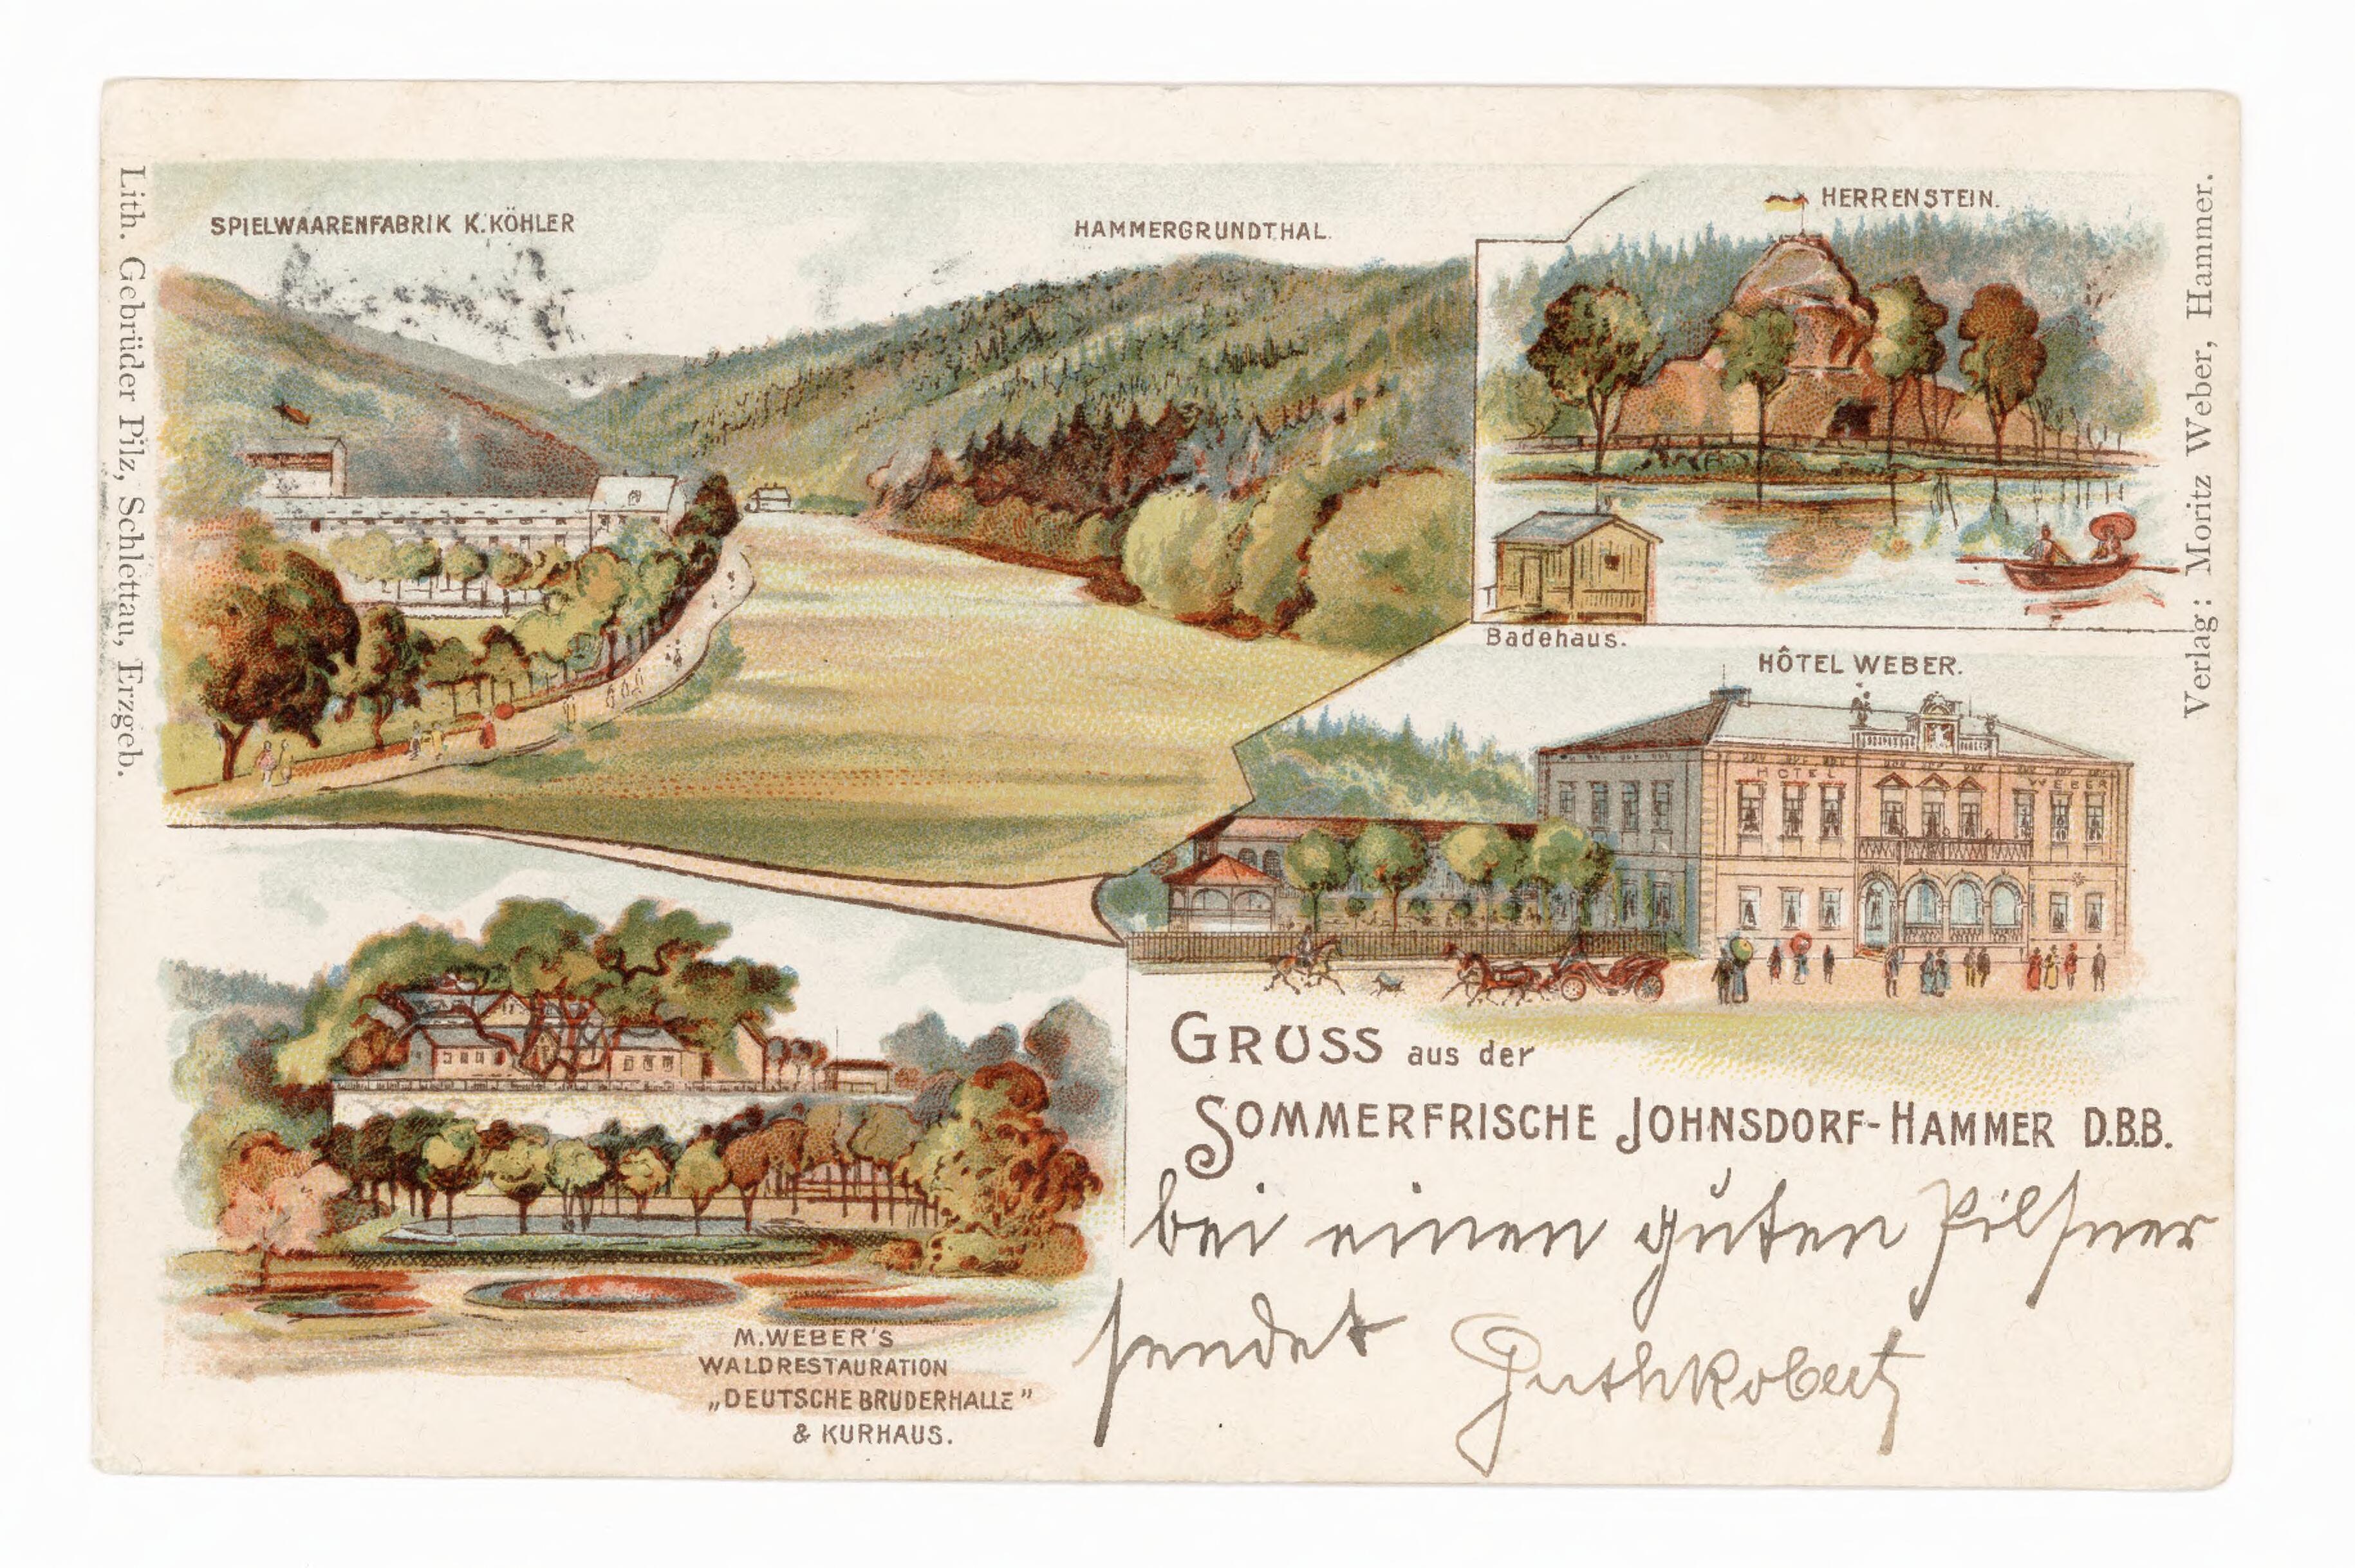 Lith. Gebrüder Pilz, Schlettau, Erzgeb.
SPIELWAARENFABRIK K. KÖHLER
HAMMERGRUNDTHAL.
HERRENSTEIN.
Badehaus.
Verlag: Moritz Weber, Hammer.
HÔTEL WEBER.
HOTEL WEBER
M. WEBER'S
WALDRESTAURATION
„DEUTSCHE BRUDERHALLE"
& KURHAUS.
GRÜSS aus der
SOMMERFRISCHE JOHNSDORF-HAMMER D.B.B.
bei einen guten Pilsner
sendet